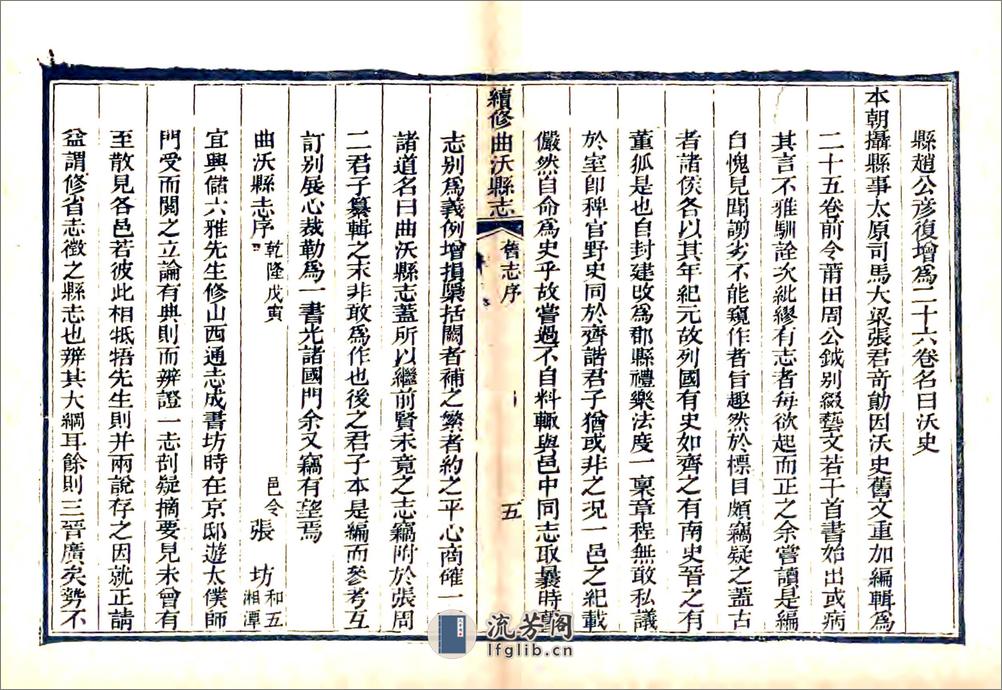 縣趙公彥復增爲二十六卷名曰沃史
本朝攝縣事太原司馬大梁張君奇勛因沃史舊文重加編輯爲
二十五卷前令莆田周公鉞别綴藝文若干首書始出或病
其言不雅馴詮次紕繆有志者每欲起而正之余嘗讀是編
自愧見聞謭劣不能窺作者旨趣然於標目頗竊疑之蓋古
者諸侯各以其年紀元故列國有史如齊之有南史晉之有
董狐是也自封建改爲郡縣禮樂法度一稟章程無敢私議
於室卽稗官野史同於齊諧君子猶或非之况一邑之紀載
儼然自命爲史乎故嘗過不自料輒與邑中同志取曩時舊
續修曲沃縣志
舊志序
五
志别爲義例增損檃括闕者補之繁者約之平心商確一一
諸道名曰曲沃縣志蓋所以繼前賢未竟之志竊附於張周
二君子纂輯之末非敢爲作也後之君子本是編而參考互
訂别展心裁勒爲一書光諸國門余又竊有望焉
曲沃縣志序 乾隆戊寅 邑令 張 坊 和五 湘潭
宜興儲六雅先生修山西通志成書坊時在京邸遊太僕師
門受而閱之立論有典則而辨證一志剖疑摘要見未曾有
至散見各邑若彼此相牴牾先生則并兩說存之因就正請
益謂修省志徵之縣志也辨其大綱耳餘則三晉廣矣勢不
流芳閣
lfglib.cn